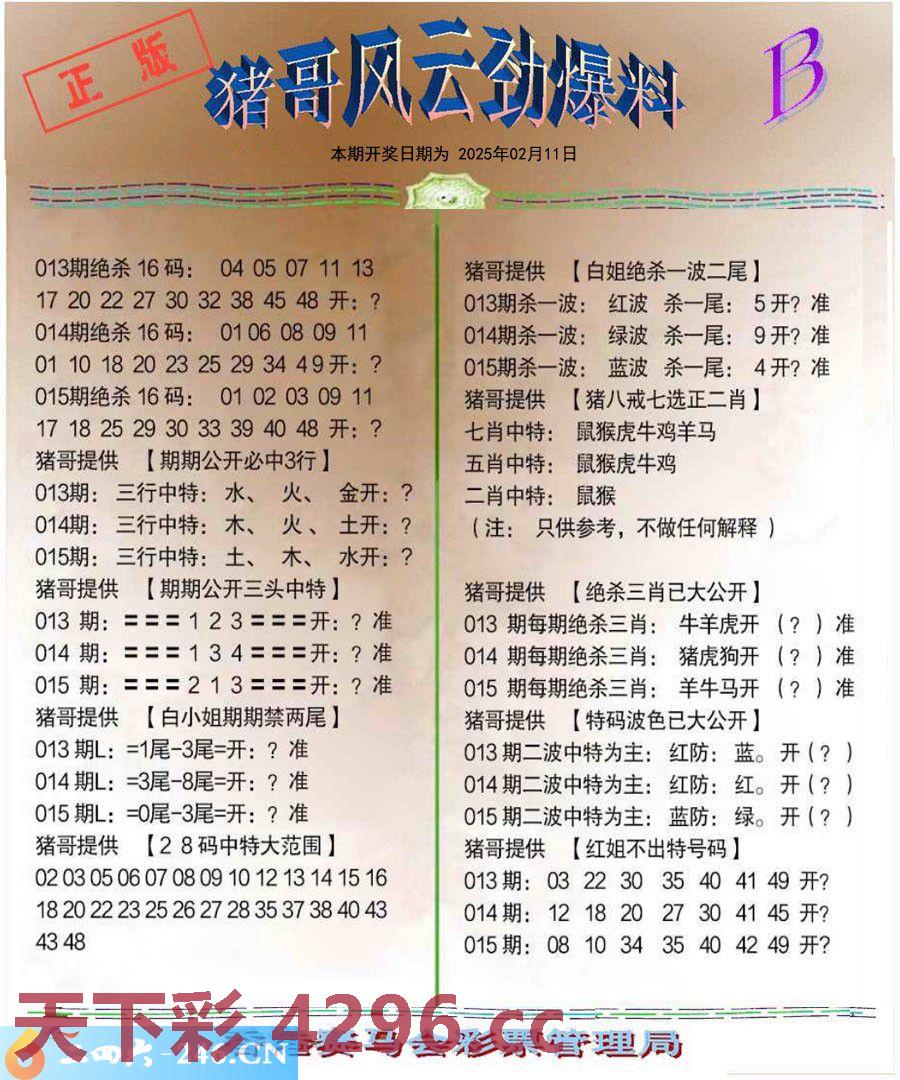 正版
猪哥风云劲爆料
B
本期开奖日期为 2025年02月11日
013期绝杀 16 码: 04 05 07 11 13
17 20 22 27 30 32 38 45 48 开: ?
014期绝杀 16 码: 01 06 08 09 11
01 10 18 20 23 25 29 34 4 9 开: ?
015期绝杀 16 码: 01 02 03 09 11
17 18 25 29 30 33 39 40 48 开: ?
猪哥提供 【期期公开必中3行】
013期: 三行中特: 水、 火、 金开: ?
014期: 三行中特: 木、 火、 土开: ?
015期: 三行中特: 土、 木、 水开: ?
猪哥提供 【期期公开三头中特】
013 期: === 1 2 3 ===开: ? 准
014 期: === 1 3 4 ===开: ? 准
015 期: === 2 1 3 ===开: ? 准
猪哥提供 【白小姐期期禁两尾】
013 期L: =1尾-3尾=开: ? 准
014 期L: =3尾-8尾=开: ? 准
015 期L: =0尾-3尾=开: ? 准
猪哥提供 【2 8 码中特大范围】
02 03 05 06 07 08 09 10 12 13 14 15 16
18 20 22 23 25 26 27 28 35 37 38 40 43
43 48
猪哥提供 【白姐绝杀一波二尾】
013期杀一波: 红波 杀一尾: 5 开? 准
014期杀一波: 绿波 杀一尾: 9 开? 准
015期杀一波: 蓝波 杀一尾: 4 开? 准
猪哥提供 【猪八戒七选正二肖】
七肖中特: 鼠猴虎牛鸡羊马
五肖中特: 鼠猴虎牛鸡
二肖中特: 鼠猴
(注: 只供参考, 不做任何解释 )
猪哥提供 【绝杀三肖已大公开】
013 期每期绝杀三肖: 牛羊虎开 (?)准
014 期每期绝杀三肖: 猪虎狗开 (?)准
015 期每期绝杀三肖: 羊牛马开 (?)准
猪哥提供 【特码波色已大公开】
013 期二波中特为主: 红防: 蓝。 开(?)
014 期二波中特为主: 红防: 红。 开(?)
015 期二波中特为主: 蓝防: 绿。 开(?)
猪哥提供 【红姐不出特号码】
013 期: 03 22 30 35 40 41 49 开?
014 期: 12 18 20 27 30 41 45 开?
015 期: 08 10 34 35 40 42 49 开?
天下彩 4296.cc
二四六 -246.CN
马会彩票管理局